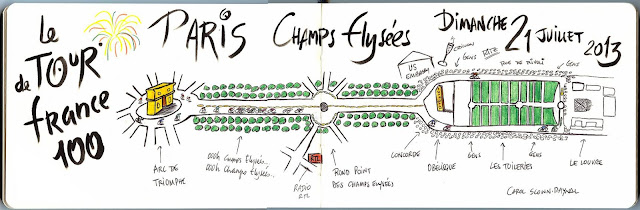 Le TOUR de france 100
PARIS Champs Elysées
DIMANCHE 21 JUILLET 2013
US EMBASSY
GENS
RITZ
RUE DE RIVOLI
GENS
ARC DE TRIOMPHE
oooh Champs Elysées..
oooh Champs Elysées..
RADIO RTL
RTL
ROND POINT DES CHAMPS ELYSÉES
CONCORDE
OBÉLISQUE
GENS
LES TUILERIES
GENS
LE LOUVRE